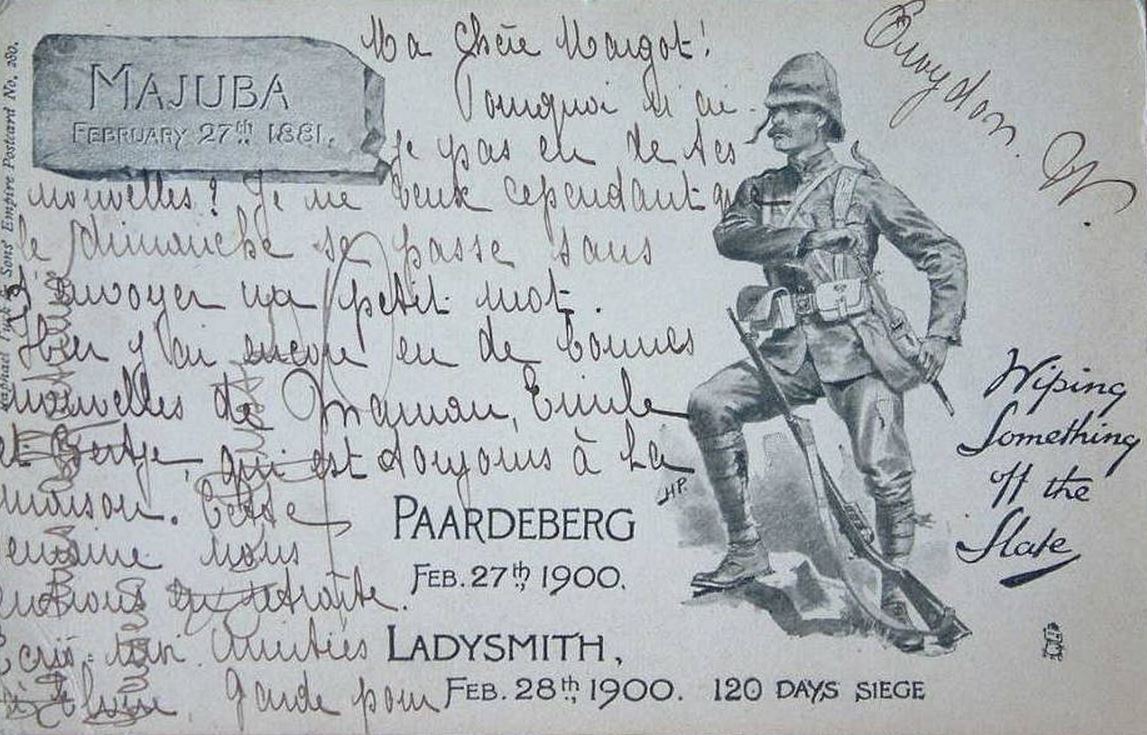 Croydon. W.
Ma Chère Margot!
MAJUBA
FEBRUARY 27th 1881.
Pourquoi n'ai-
je pas eu de tes
nouvelles? Je ne veux cependant que
le dimanche se passe sans
t'envoyer un petit mot.
Hier j'ai encore eu de bonnes
nouvelles de Maman, Emile
et qui est toujours à la
maison. Cette
semaine nous
entrons en retraite.
Ecris-moi. Amitiés
à garde pour
PAARDEBERG
FEB. 27th 1900.
LADYSMITH,
FEB. 28th 1900. 120 DAYS SIEGE
Wiping
Something
off the
Slate
HP.
Raphael Tuck & Sons Empire Postcard No. 280.